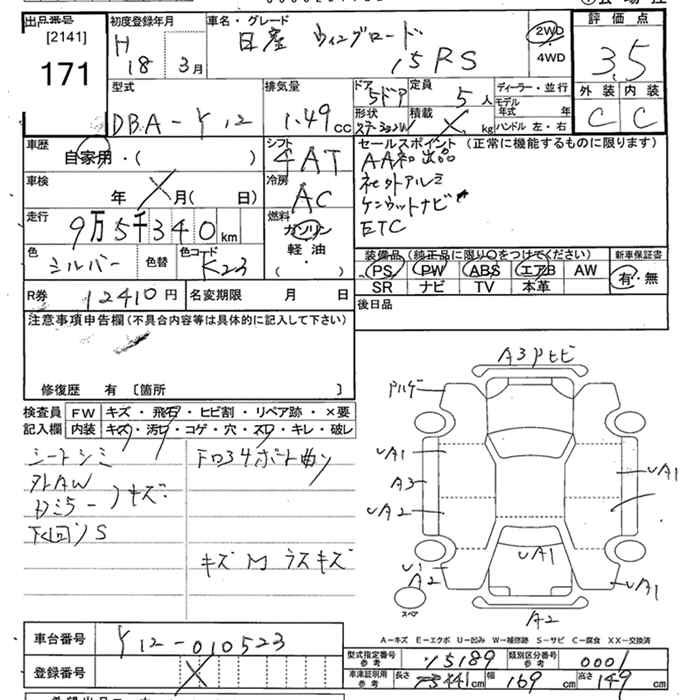 出品番号
[2141]
171
初度登録年月
H 18 3月
車名・グレード
日産 ウィングロード
15RS
2WD
4WD
評価点
3.5
外装 内装
C C
型式
DBA-Y12
排気量
1.49 cc
ドア 5ドア
形状
定員 5人
積載 kg
ディーラー・並行
モデル年式 年
ハンドル 左・右
車歴
自家用・( )
シフト
4AT
車検
年 月( 日)
冷房
AC
走行
9万5千340km
燃料
ガソリン
軽油
( ・ )
色
シルバー
色替
色コード
K23
R券 12410円
名変期限 月 日
セールスポイント (正常に機能するものに限ります)
AA初出品
社外アルミ
ケンウットナビ
ETC
装備品(純正品に限り○をつけてください)
新車保証書
PS PW ABS エアB AW
SR ナビ TV 本革
有・無
後日品
注意事項申告欄(不具合内容等は具体的に記入して下さい)
修復歴 有 〔箇所 〕
検査員 FW キズ・飛石・ヒビ割・リペア跡・×要
記入欄 内装 キズ・汚れ・コゲ・穴・スレ・キレ・破レ
シートシミ
外AW
Dミラー キズ
下回りS
キズ M ラスキズ
A3 P ヒビ
UA1
A3
UA2
UA1
A2
UA1
UA1
A2
スペア
A-キズ E-エクボ U-凹み W-補修跡 S-サビ C-腐食 XX-交換済
車台番号 Y12-010523
登録番号
型式指定番号 参考 15189
類別区分番号 参考 0001
車庫証明用 参考 長さ 441cm 幅 169cm 高さ 149cm